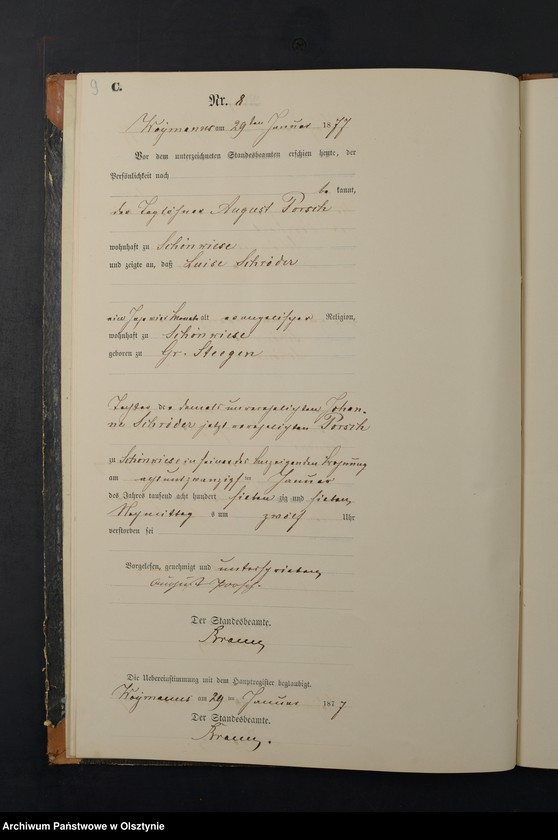 9 C.
Nr. 2
am 29ten Januar 1877
Vor dem unterzeichneten Standesbeamten erschien heute, der
Persönlichkeit nach
be kannt,
der Taglöhner August Porsch
wohnhaft zu Schönwiese
und zeigte an, daß Luise Schröder
ein Jahr vier Monate alt evangelischer Religion,
wohnhaft zu Schönwiese
geboren zu Gr. Steegen
Tochter der damals unverehelichten Johan-
ne Schröder jetzt verehelichten Porsch
zu Schönwiese in seiner des Anzeigenden Wohnung
am achtundzwanzigsten Januar
des Jahres tausend acht hundert sieben zig und sieben,
Nachmittag s um zwölf Uhr
verstorben sei
Vorgelesen, genehmigt und unterschrieben
August Porsch.
Der Standesbeamte.
Die Uebereinstimmung mit dem Hauptregister beglaubigt.
am 29 ten Januar 1877
Der Standesbeamte.
Archiwum Państwowe w Olsztynie